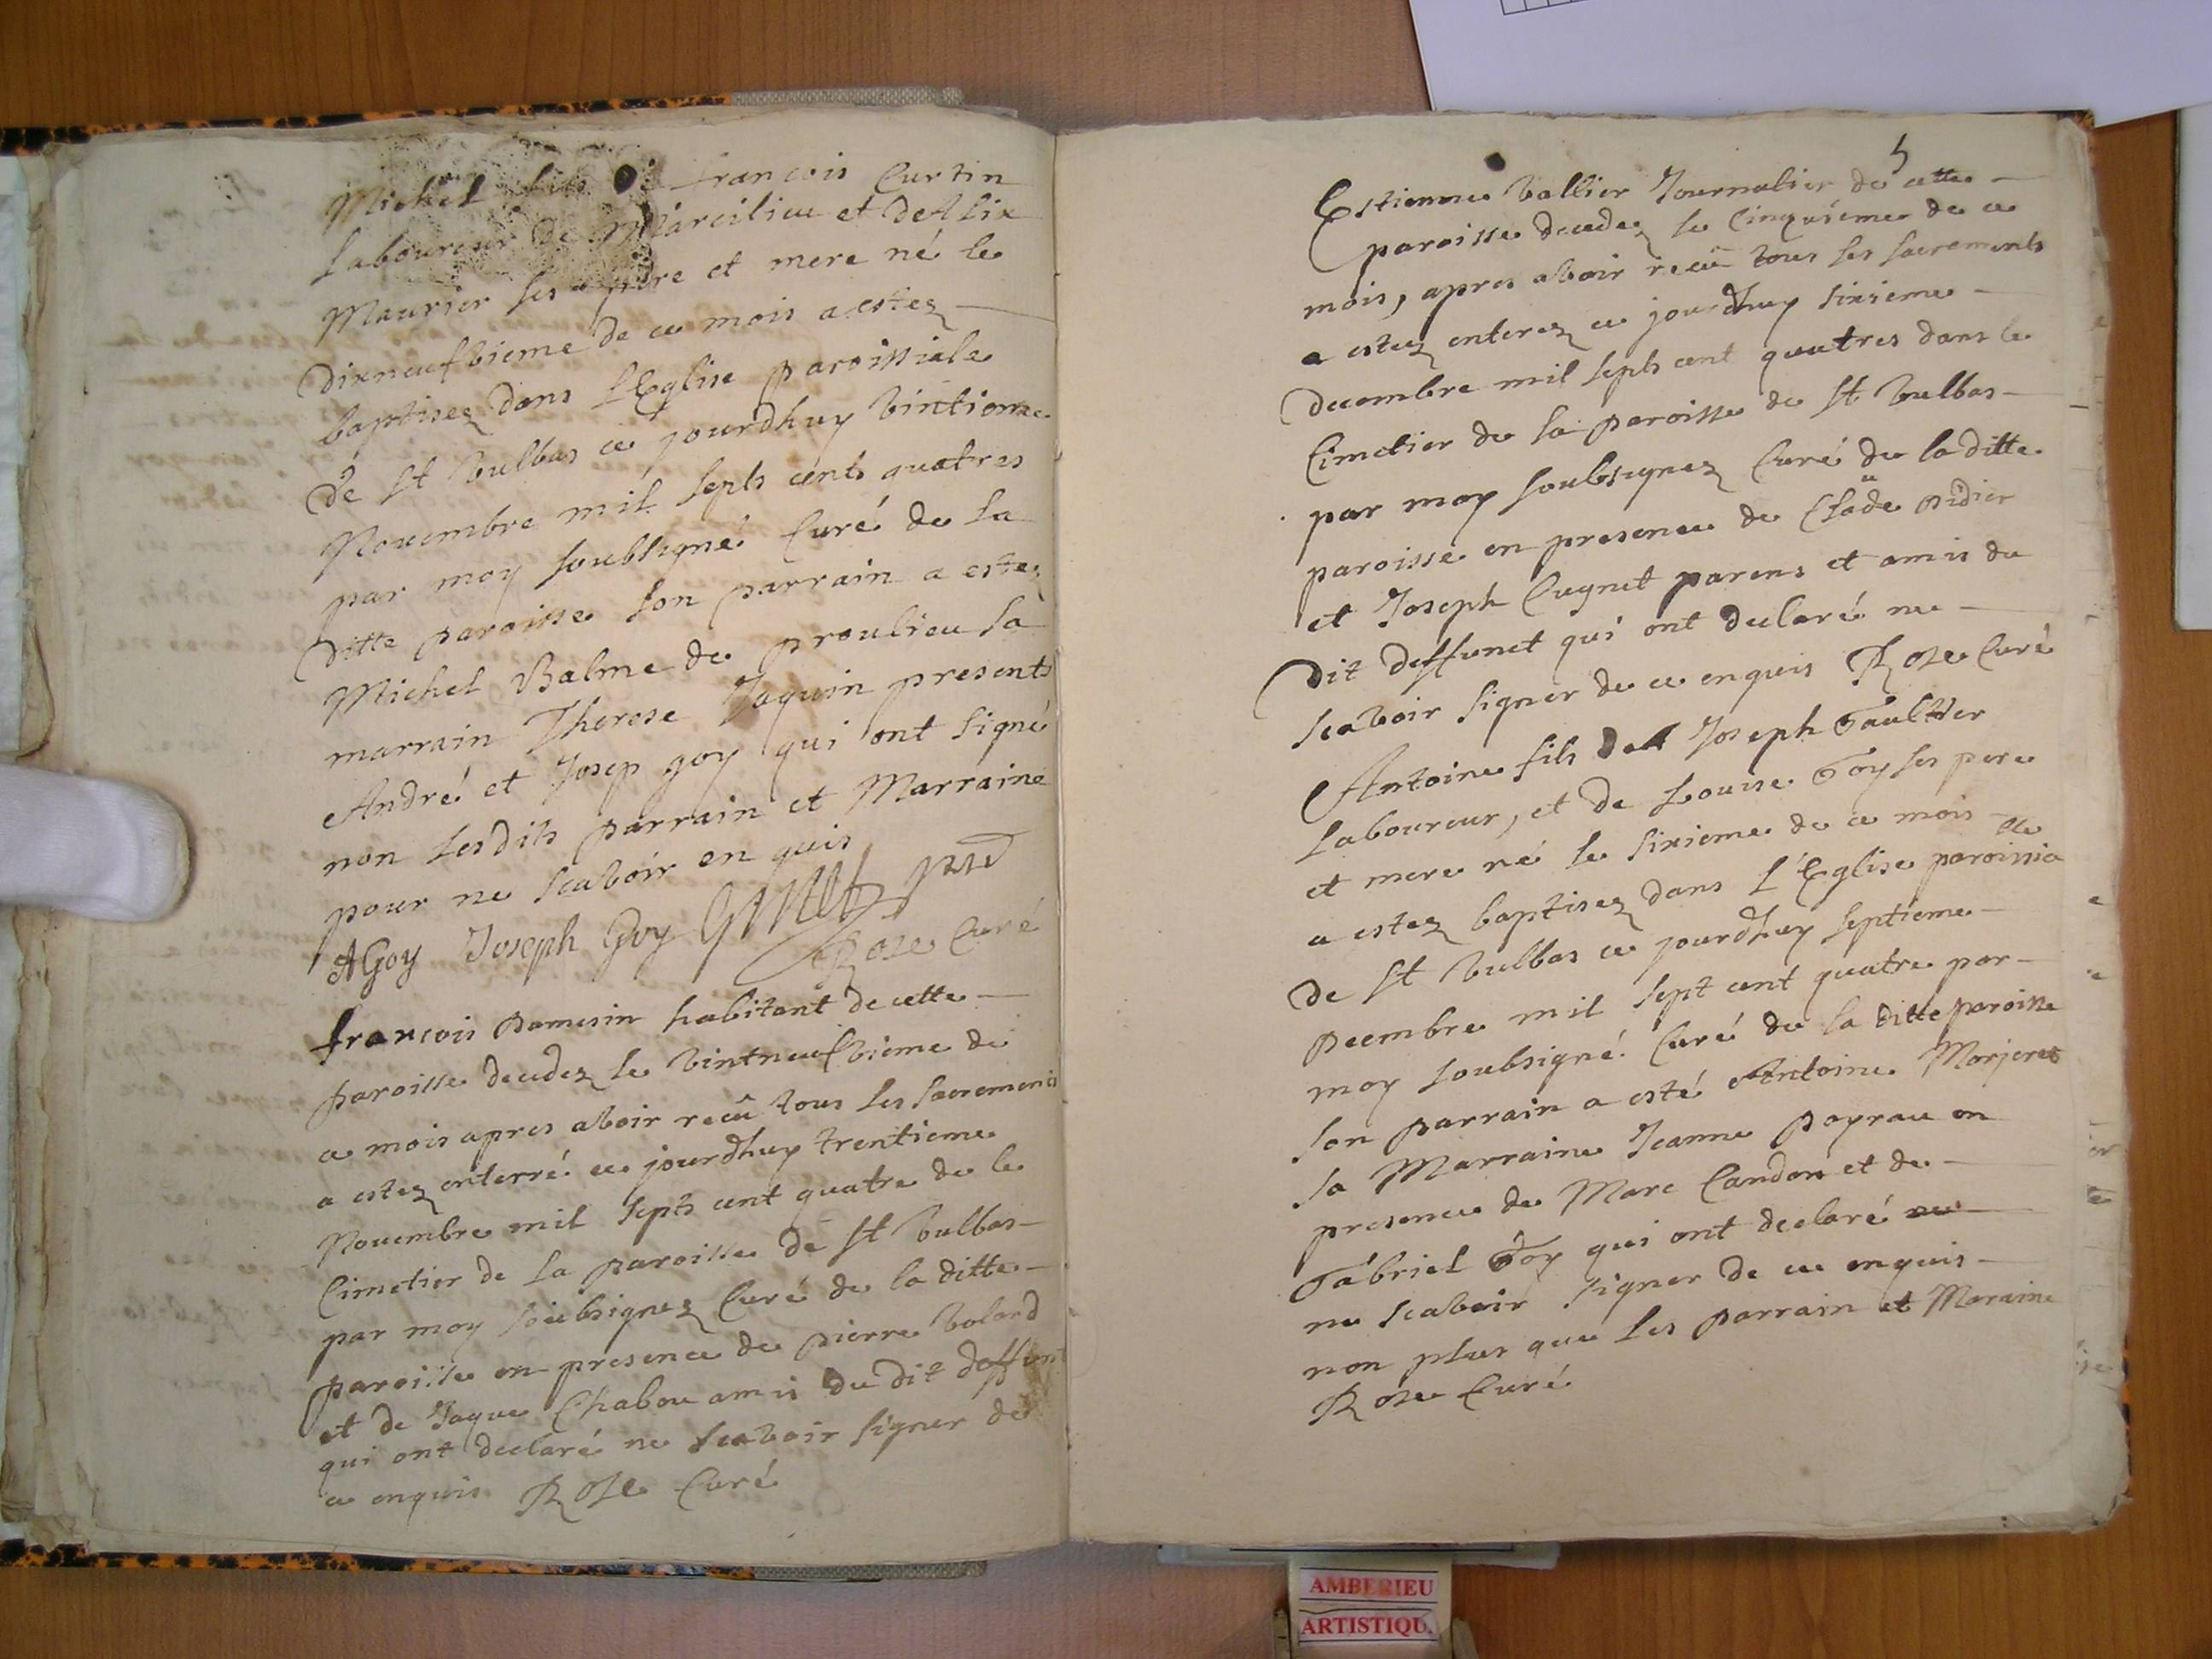 Michel fils de francois Curtin
Laboureur de Marcilieu et de Alix
Maurier ses père et mere né le
dixneufvieme de ce mois a estez
baptisez dans L'Eglise paroissiale
de St Vulbas ce jourdhuy vintieme
Novembre mil septs cents quatres
par moy soubsigné Curé de la
ditte paroisse son parrain a estez
Michel Balme de proulieu sa
marrain Therese Jaquin presents
André et Josep goy qui ont signé
non lesdits parrain et Marraine
pour ne scavoir en quis
AGoy Joseph Goy
Rose Curé
francois pamesin habitant de cette
paroisse decedez le vintneufvieme de
ce mois apres avoir recû tous les sacrements
a estez enterré ce jourdhuy trentieme
Novembre mil septs cent quatre de le
Cimetier de la paroisse de St Vulbas
par moy soubsignez Curé de la ditte
paroisse en presence de pierre bolard
et de Jaque Chabou amis du dit deffunt
qui ont declaré ne scavoir signer de
ce enquis Rose Curé
5
Estienne Vallier Journalier de cette
paroisse decedez le Cinquieme de ce
mois, apres avoir recû tous les sacrements
a estez enterez ce jourdhuy sixieme
decembre mil septs cent quatres dans le
Cimetier de la paroisse de St Vulbas
par moy soubsignez Curé de la ditte
paroisse en presence de Claude pidier
et Joseph Cugnet parens et amis du
dit deffunct qui ont declaré ne
scavoir signer de ce enquis Rose Curé
Antoine fils de Joseph Gaultier
Laboureur, et de Louise Goy ses pere
et mere né le sixieme de ce mois
a estez baptisez dans L'Eglise paroissialle
de St Vulbas ce jourdhuy septieme
Decembre mil sept cent quatre par
moy soubsigné Curé de la ditte paroisse
son parrain a esté Antoine Morjeret
sa Marraine Jeanne payrau en
presence de Marc Candon et de
Gabriel Goy qui ont declaré ne
ne scavoir signer de ce enquis
non plus que les parrain et Maraine
Rose Curé
AMBERIEU
ARTISTIQU